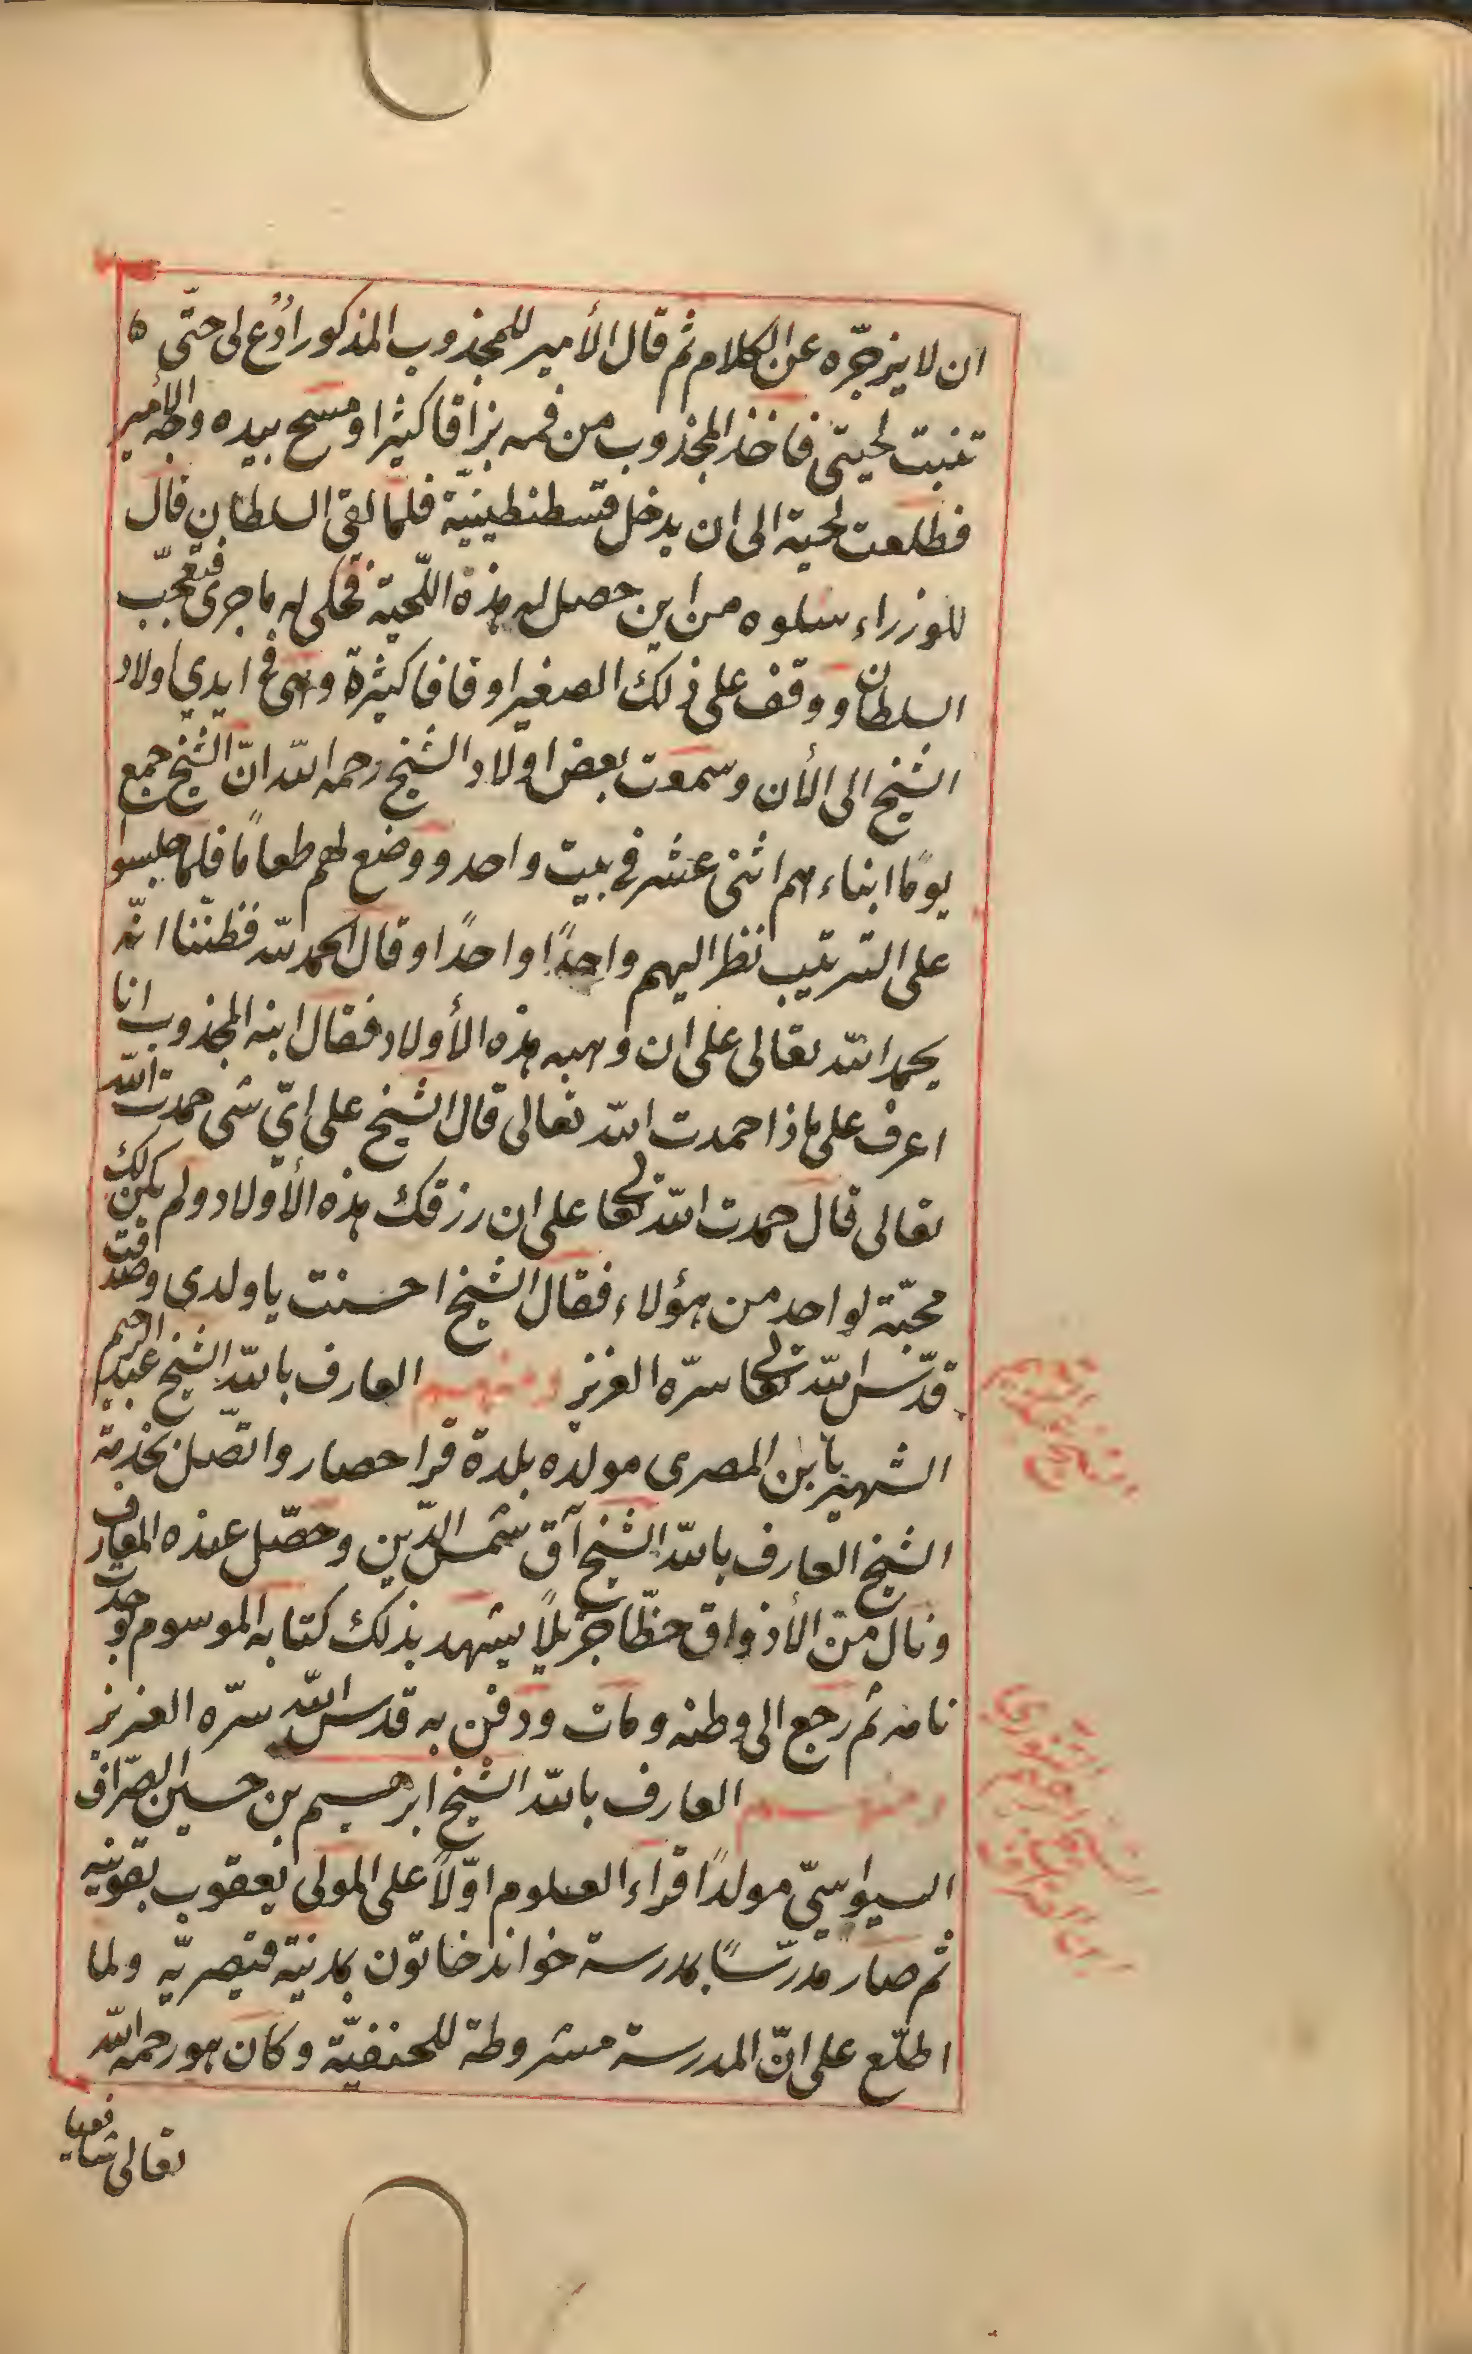 ان لا يزجّره عن الكلام ثم قال الأمير للمجذوب المذكور اُدْعُ لى حتّى ٥
تنبت لحيتى فاخذ المجذوب من فمه بزاقا كثيرا ومسح بيده وجه الأمير
فطلعت لحية الى ان يدخل قسطنطينيّة فلمّا لقى السلطان قال
للوزراء سلوه من اين حصل له هذه اللّحية فحكى له ما جرى فتعجّب
السلطان ووقف على ذلك الصغير اوقافا كثيرة وهى فى ايدي اولاد
الشيخ الى الأن وسمعت بعض اولاد الشيخ رحمه الله انّ الشيخ جمع
يومًا ابناءهم اثنى عشر فى بيت واحد ووضع لهم طعامًا فلمّا جلسوا
على الترتيب نظر اليهم واحدًا واحدًا وقال الحمد لله فظنّنا انّه
يحمد الله تعالى على ان وهبه هذه الأولاد فقال ابنه المجذوب انا
اعرف على ماذا حمدت الله تعالى قال الشيخ على ايّ شى حمدت الله
تعالى قال حمدت الله تعالى على ان رزقك هذه الأولاد ولم يكن لك
محبّة لواحد من هؤلاء فقال الشيخ احسنت يا ولدى وصدقت
قدّس الله تعالى سرّه العزيز ومنهم العارف بالله الشيخ عبد الرحيم
الشهير بابن المصرى مولده بلدة قرا حصار واتّصل بخدمة
الشيخ العارف بالله الشيخ آق شمس الدّين وحصّل عنده المعارف
ونال من الأذواق حظّا جزيلاً يشهد بذلك كتابه الموسوم بوحدت
نامه ثم رجع الى وطنه ومات ودفن به قدس الله سرّه العزيز
ومنهم العارف بالله الشيخ ابرهيم بن حسين الصرّاف
السيواسيّ مولدًا قراء العلوم اوّلاً على المولى يعقوب بقونيه
ثم صار مدرّسًا بمدرسة خواند خاتون بمدينة قيصريّه ولما
اطّلع على انّ المدرسة مشروطة للحنفيّة وكان هو رحمه الله
تعالى شافعيا